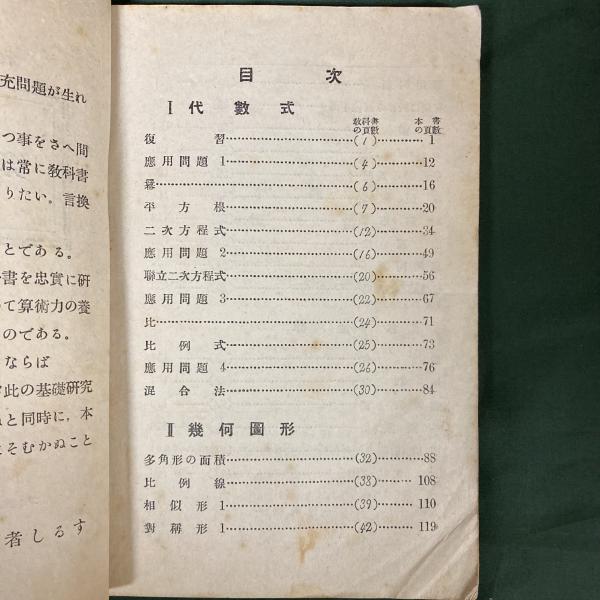 充問題が生れ
つ事をさへ間
は常に教科書
りたい。言換
とである。
書を忠實に研
て算術力の養
のである。
ならば
此の基礎研究
と同時に、本
そむかぬこと
者しるす
目次
I 代數式
教科書の頁數 本書の頁數
復習 (1) 1
應用問題 1 (4) 12
冪 (6) 16
平方根 (7) 20
二次方程式 (12) 34
應用問題 2 (16) 49
聯立二次方程式 (20) 56
應用問題 3 (22) 67
比 (24) 71
比例式 (25) 73
應用問題 4 (26) 76
混合法 (30) 84
II 幾何圖形
多角形の面積 (32) 88
比例線 (38) 108
相似形 1 (39) 110
對稱形 1 (42) 119